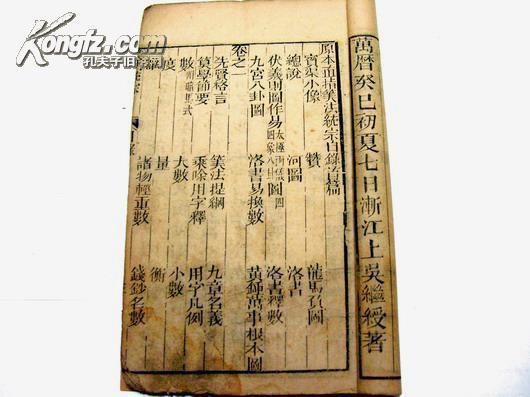 Kongfz.com
孔夫子旧书网
萬曆癸巳初夏七日漸江上吳繼綬著
原本直指筭法統宗目錄首篇
賓渠小像 贊 龍馬負圖
總說 河圖 洛書
伏羲則圖作易 洛書釋數
九宮八卦圖 洛書易換數 黃鍾萬事根本圖
卷之一
先賢格言 筭法提綱 九章名義
筭學節要 乘除用字釋 用字凡例
數 大數 小數
度 量 衡
諸物輕重數 錢鈔名數